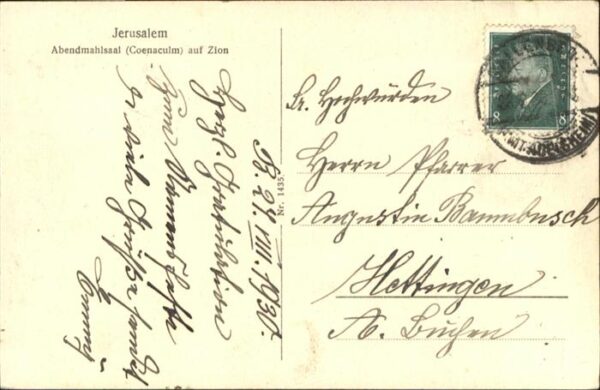 Jerusalem
Abendmahlsaal (Coenaculm) auf Zion
B. 24. VIII. 1930.
Herzl. Gratulation
zum Namensfeste
u. viele Grüße sendet
Nr. 1435.
Sr. Hochwürden
Herrn Pfarrer
Augustin Baumbusch
Hettingen
A. Buchen
8 8